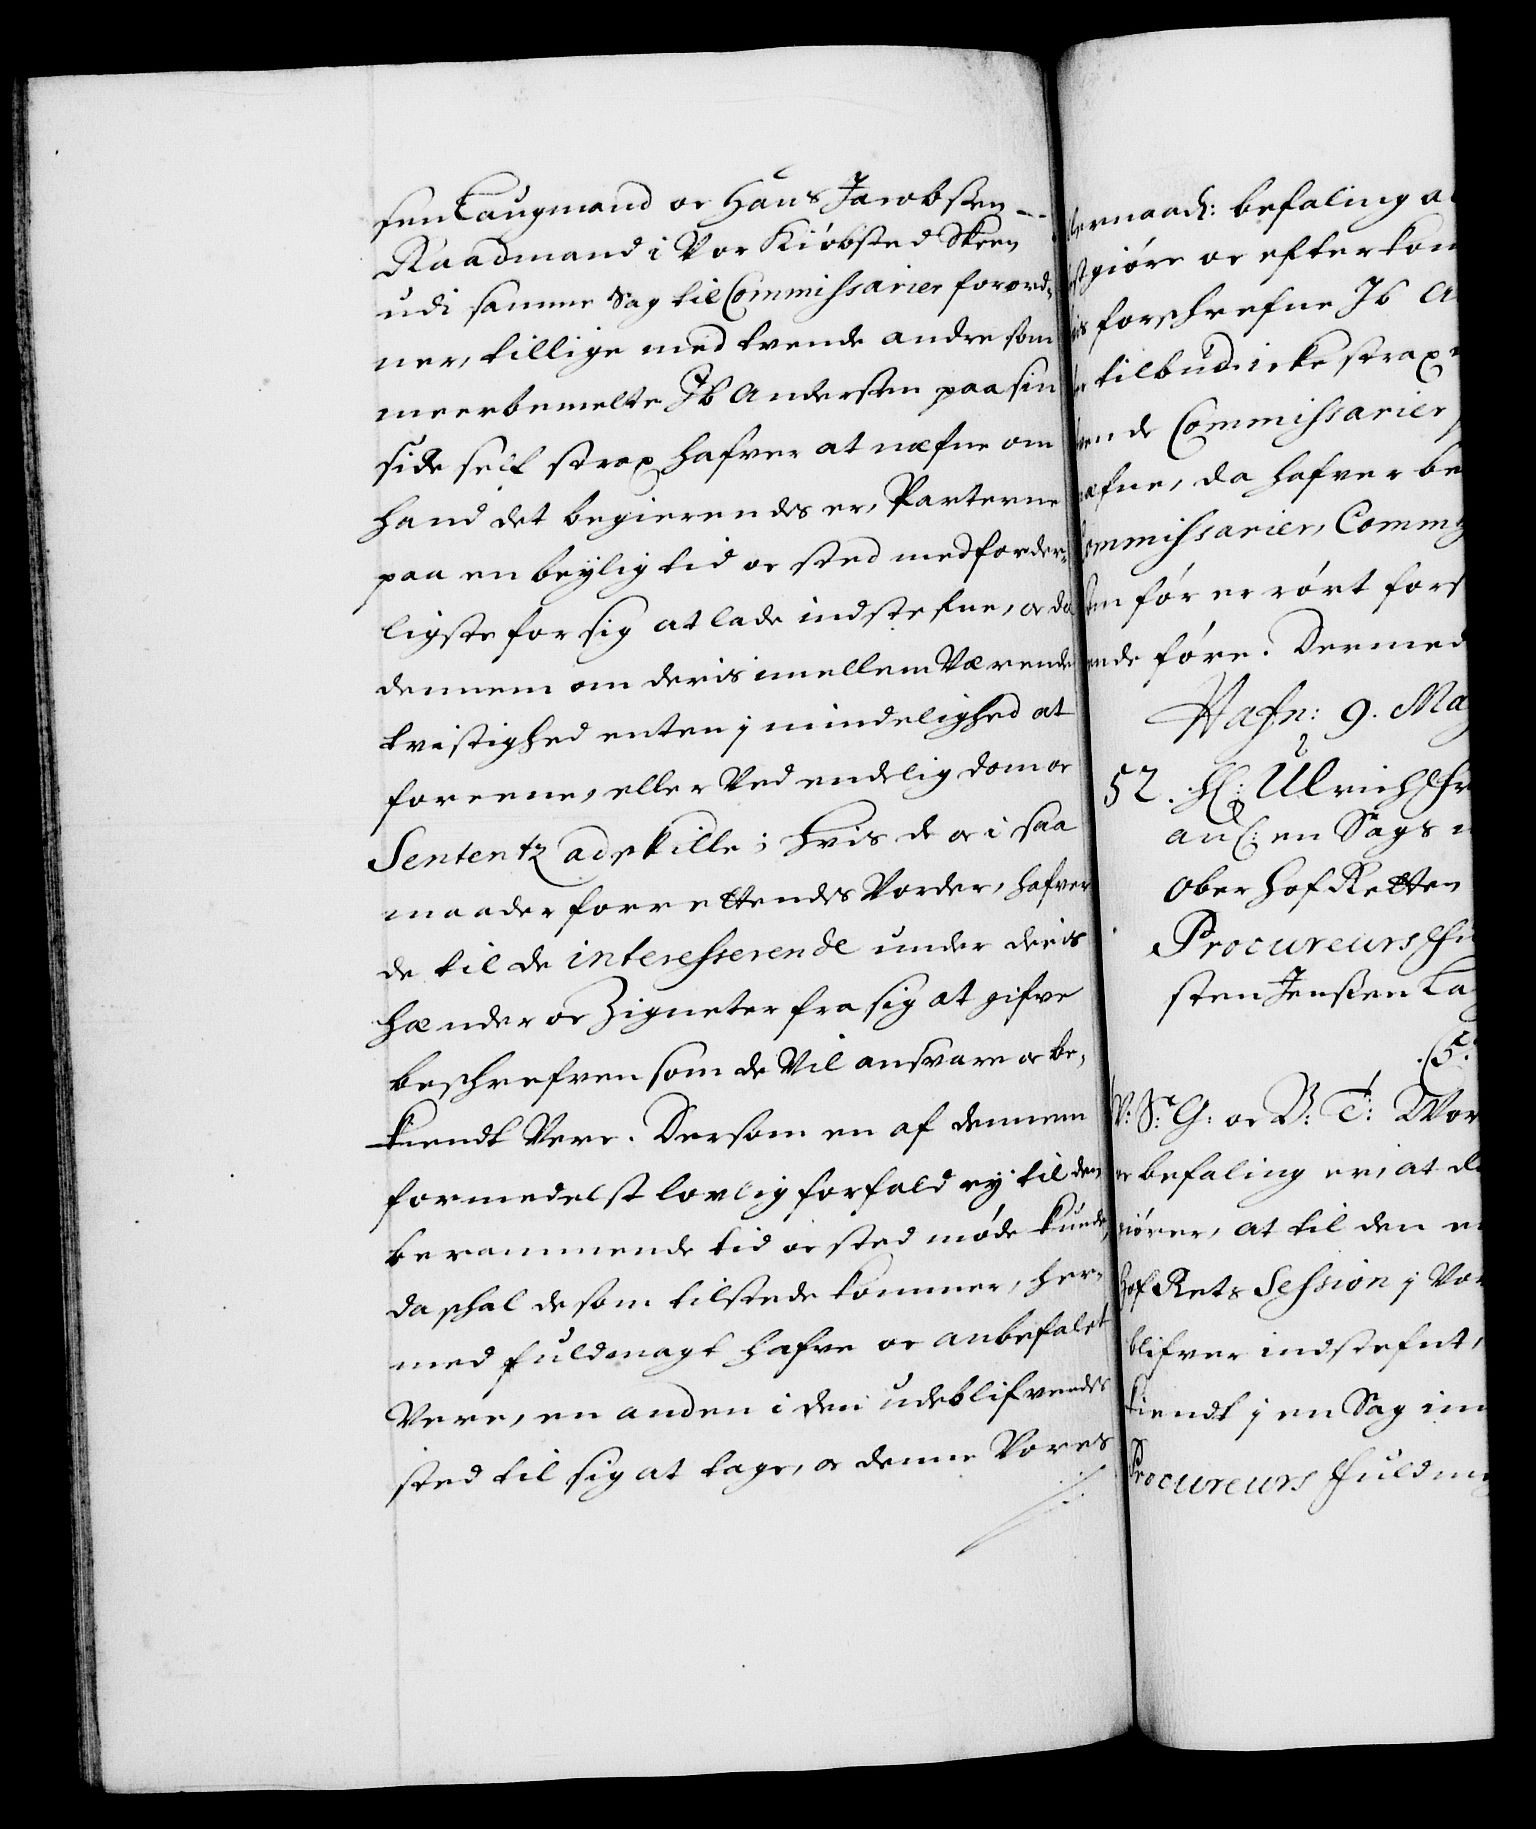 sen Laugmand oc Hans Jacobsen --
Raadmand i Vor Kiøbsted Skeen
udi samme Sag til Commissarier forord-
ner, tillige med tvende andre som
meerbemelte Ib Andersen paa sin
side self strax hafver at næfne om
hand det begierendes er, Parterne
paa en beqvlig tid oc sted med forder-
ligste for sig at lade indstefne, oc da
dennem om deris imellem Værende
tvistighed enten j mindelighed at
foreene, eller Ved endelig dom oc
Sententz adskille; hvis de oc i saa
maader forrettendes Vorder, hafver
de til de interesserende under deris
hænder oc Zigneter fra sig at gifve
beschrefven som de Vil ansvare oc be-
kiendt Vere. Dersom en af dennem
formedelst lovlig forfald ey til den
berammende tid oc sted møde kunde,
da schal de som tilstede kommer, her-
med fuldmagt hafve oc anbefalet
Vere, en anden i den udeblifvendes
sted til sig at tage, oc denne Vores
naad: befaling a
giøre oc efterkom
forschrefne Ib A
tilbud icke strax
Commissarier
næfne, da hafver be
Commissarier, Commis
før er rørt fors
føre. Dermed
Hafn: 9. Maj
52. H: Ulrich Fr
anl: en Sags
Oberhof Retten
Procureurs Fu
sten Jensen La
C5.
V: S: G: oc V: T: Wor
befaling er, at d
giører, at til den
hof Rets Session j Vor
blifver indstefnt,
kiendt j en Sag im
Procureurs Fuldm